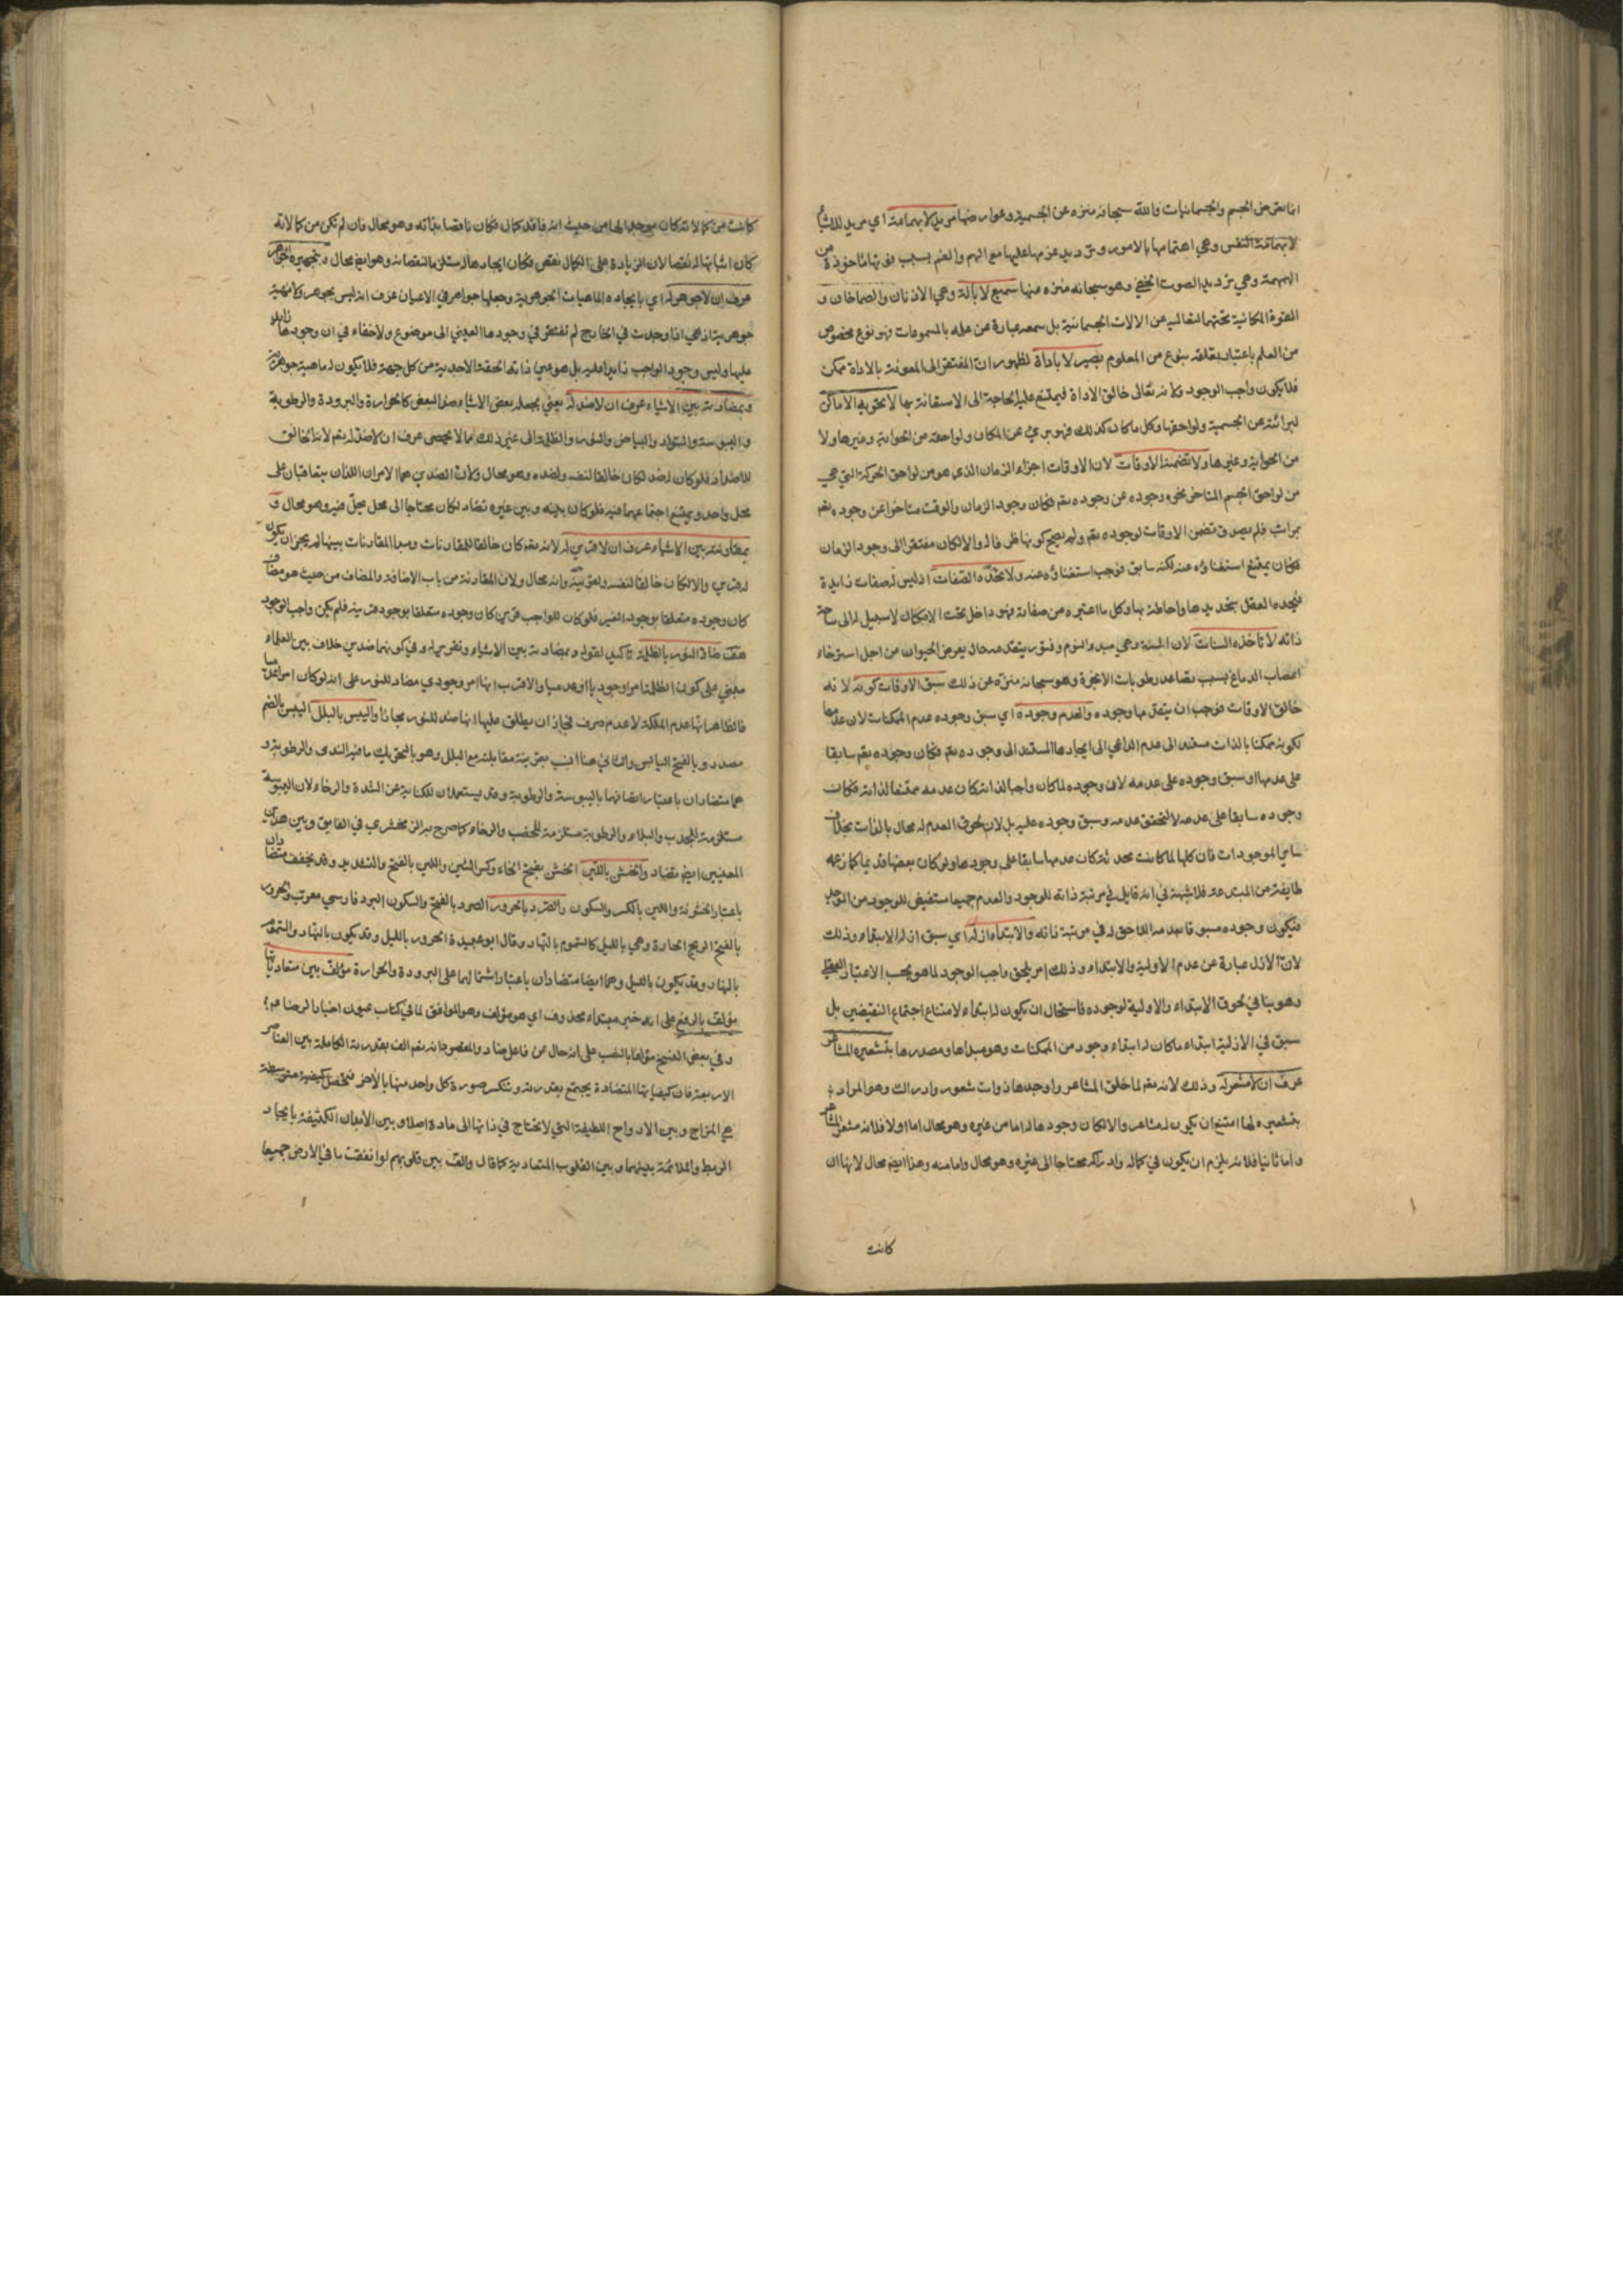 انما تعرض الجسم والجسمانيات والله سبحانه منزه عن الجسمية وعوارضها مريد لا بهمامة اي مريد للاشياء
لا بهمامة النفس وهي اهتمامها بالامور وترديد عزمها عليها مع الهم والغم بسبب فوتها مأخوذة من
الهمهمة وهي ترديد الصوت الخفي وهو سبحانه منزه عنها سميع لا بآلة وهي الاذنان والصماخان و
القوة المكانية تحتهما لتعاليه عن الالات الجسمانية بل سمعه عبارة عن علمه بالمسموعات فهو نوع مخصوص
من العلم باعتبار تعلقه بنوع من المعلوم بصير لا باداة لظهور ان المفتقر الى المعونة بالاداة ممكن
فلا يكون واجب الوجود ولانه تعالى خالق الاداة فيمتنع عليه الحاجة الى الاستعانة بها لا تحويه الاماكن
لبرائته عن الجسمية ولواحقها وكل ما كان كذلك فهو بريء عن المكان ولواحقه من الحواية وغيرها ولا
من الحواية وغيرها ولا تضمنه الاوقات لان الاوقات اجزاء الزمان الذي هو من لواحق الحركة التي هي
من لواحق الجسم المتاخر نحو وجوده عن وجوده تعم فكان وجود الزمان والوقت متاخرا عن وجوده تعم
بمراتب فلم يصدق تضمن الاوقات لوجوده تعم ولم يصح كونها ظرفا له والا لكان مفتقرا الى وجود الزمان
فكان يمتنع استغناؤه عنه لكنه سابق فوجب استغناؤه عنه ولا تحده الصفات اذ ليس له صفات زايدة
فيحده العقل بتحديدها واحاطته بها وكل ما اعتبره من صفاته فهو داخل تحت الامكان لا سبيل له الى ساحة
ذاته لا تأخذه السنات لان السنة وهي مبدء النوم وفتور يتقدمه حال يعرض الحيوان من اجل استرخاء
اعصاب الدماغ بسبب تصاعد رطوبات الابخرة وهو سبحانه منزه عن ذلك سبق الاوقات كونه لانه
خالق الاوقات فوجب ان يتقدمها وجوده والعدم وجوده اي سبق وجوده عدم الممكنات لان عدمها
لكونه ممكنا بالذات مستند الى عدم الداعي الى ايجادها المستند الى وجوده تعم فكان وجوده تعم سابقا
على عدمها او سبق وجوده على عدمه لان وجوده لما كان واجبا لذاته كان عدمه ممتنعا لذاته فكان
وجوده سابقا على عدمه لا لتحقق عدمه وسبق وجوده عليه بل لان لحوق العدم له محال بالذات بخلاف
ساير الموجودات فان كلها لما كانت محدثة كان عدمها سابقا على وجودها ولو كان بعضها قديما كما زعمه
طايفة من المبتدعة فلا شبهة في انه قابل في مرتبة ذاته للوجود والعدم جميعا مستفيض للوجود من الموجد
فيكون وجوده مسبوقا بعدمه اللاحق له في مرتبة ذاته والابتداء ازله اي سبق ازله الابتداء وذلك
لان الازل عبارة عن عدم الاولية والابتداء وذلك امر يلحق واجب الوجود لما هو بحسب الاعتبار العقلي
وهو ينافي لحوق الابتداء والاولية لوجوده فاستحال ان يكون له ابتداء لامتناع اجتماع النقيضين بل
سبق في الازلية ابتداء ما كان له ابتداء وجود من الممكنات وهو مبداها ومصدرها بتشعيره المشاعر
عرف ان لا مشعر له وذلك لانه تعم لما خلق المشاعر واوجدها ذوات شعور وادراك وهو المراد
بتشعيره لها امتنع ان يكون له مشاعر والا لكان وجودها له اما من غيره وهو محال اما اولا فلانه مشعر المشاعر
واما ثانيا فلانه يلزم ان يكون في كماله وادراكه محتاجا الى غيره وهو محال واما منه وهذا ايضم محال لانها ان
كانت
كانت من كمالاته كان موجدا لها من حيث انه فاقد كمال فكان ناقصا بذاته وهو محال وان لم تكن من كمالاته
كان اثباتها له نقصا لان الزيادة على الكمال نقص فكان ايجادها له مستلزما لنقصانه وهو ايضم محال وبتجهيره الجواهر
عرف ان لا جوهر له اي بايجاده الماهيات الجوهرية وجعلها جواهر في الاعيان عرف انه ليس بجوهر ولا مهية
جوهرية اذ هي اذا وجدت في الخارج لم تفتقر في وجودها العيني الى موضوع ولا خفاء في ان وجودها زايد
عليها وليس وجود الواجب زايدا عليه بل هو عين ذاته الحقة الاحدية من كل جهة فلا يكون له ماهية جوهرية
وبمضادته بين الاشياء عرف ان لا ضد له يعني بجعله بعض الاشياء ضد البعض كالحرارة والبرودة والرطوبة
واليبوسة والسواد والبياض والنور والظلمة الى غير ذلك مما لا يحصى عرف ان لا ضد له تعم لانه الخالق
للاضداد فلو كان له ضد لكان خالقا لنفسه ولضده وهو محال ولان الضدين هما الامران اللذان يتعاقبان على
محل واحد ويمتنع اجتماعهما فيه فلو كان بينه وبين غيره تضاد لكان محتاجا الى محل يحل فيه وهو محال و
بمقارنته بين الاشياء عرف ان لا قرين له لانه تعم كان خالقا للمقارنات ومبدا المقارنات بينها لم يجز ان يكون
له قرين والا لكان خالقا لنفسه ولقرينه وانه محال ولان المقارنة من باب الاضافة والمضاف من حيث هو مضاف
كان وجوده متعلقا بوجود الغير فلو كان للواجب قرين كان وجوده متعلقا بوجود قرينه فلم يكن واجب الوجود
هف ضاد النور بالظلمة تاكيد لقوله وبمضادته بين الاشياء وتقرير له وفي كونهما ضدين خلاف بين العلماء
مبني على كون الظلمة امرا وجوديا او عدميا والاقرب انها امر وجودي مضاد للنور على انه لو كان امرا عدميا
فالظاهر انها عدم الملكة لا عدم صرف فجاز ان يطلق عليها انها ضد للنور مجازا واليبس بالبلل اليبس بالضم
مصدر وبالفتح اليابس والثاني هنا انسب بقرينة مقابلته مع البلل وهو بالتحريك ما فيه الندى والرطوبة و
هما متضادان باعتبار اتصافهما باليبوسة والرطوبة وقد يستعملان للكناية عن الشدة والرخاء لان اليبوسة
مستلزمة للجدب والبلاء والرطوبة مستلزمة للخصب والرخاء كما صرح به الزمخشري في الفايق وبين هذين
المعنيين ايضم تضاد والخشن باللين الخشن بفتح الخاء وكسر الشين واللين بالفتح والتشديد وقد يخفف متضادان
باعتبار الخشونة واللين بالكسر والسكون والصرد بالحرور الصرد بالفتح والسكون البرد فارسي معرب والحرور
بالفتح الريح الحارة وهي بالليل كالسموم بالنهار وقال ابو عبيدة الحرور بالليل وقد يكون بالنهار والسموم
بالنهار وقد يكون بالليل وهما ايضا متضادان باعتبار اشتمالهما على البرودة والحرارة مؤلف بين متعادياتها
مؤلف بالرفع على انه خبر مبتداء محذوف اي هو مؤلف وهو الموافق لما في كتاب عيون اخبار الرضا عم
وفي بعض النسخ مؤلفا بالنصب على انه حال عن فاعل ضاد والمقصود انه تعم الف بقدرته الكاملة بين العناصر
الاربعة فان كيفياتها المتضادة يجتمع بقدرته وتنكسر صورة كل واحد منها بالاخر فتحصل كيفية متوسطة
هي المزاج وبين الارواح اللطيفة التي لا تحتاج في ذاتها الى مادة اصلا وبين الابدان الكثيفة بايجاد
الربط والملائمة بينهما وبين القلوب المتعادية كما قال والف بين قلوبهم لو انفقت ما في الارض جميعا